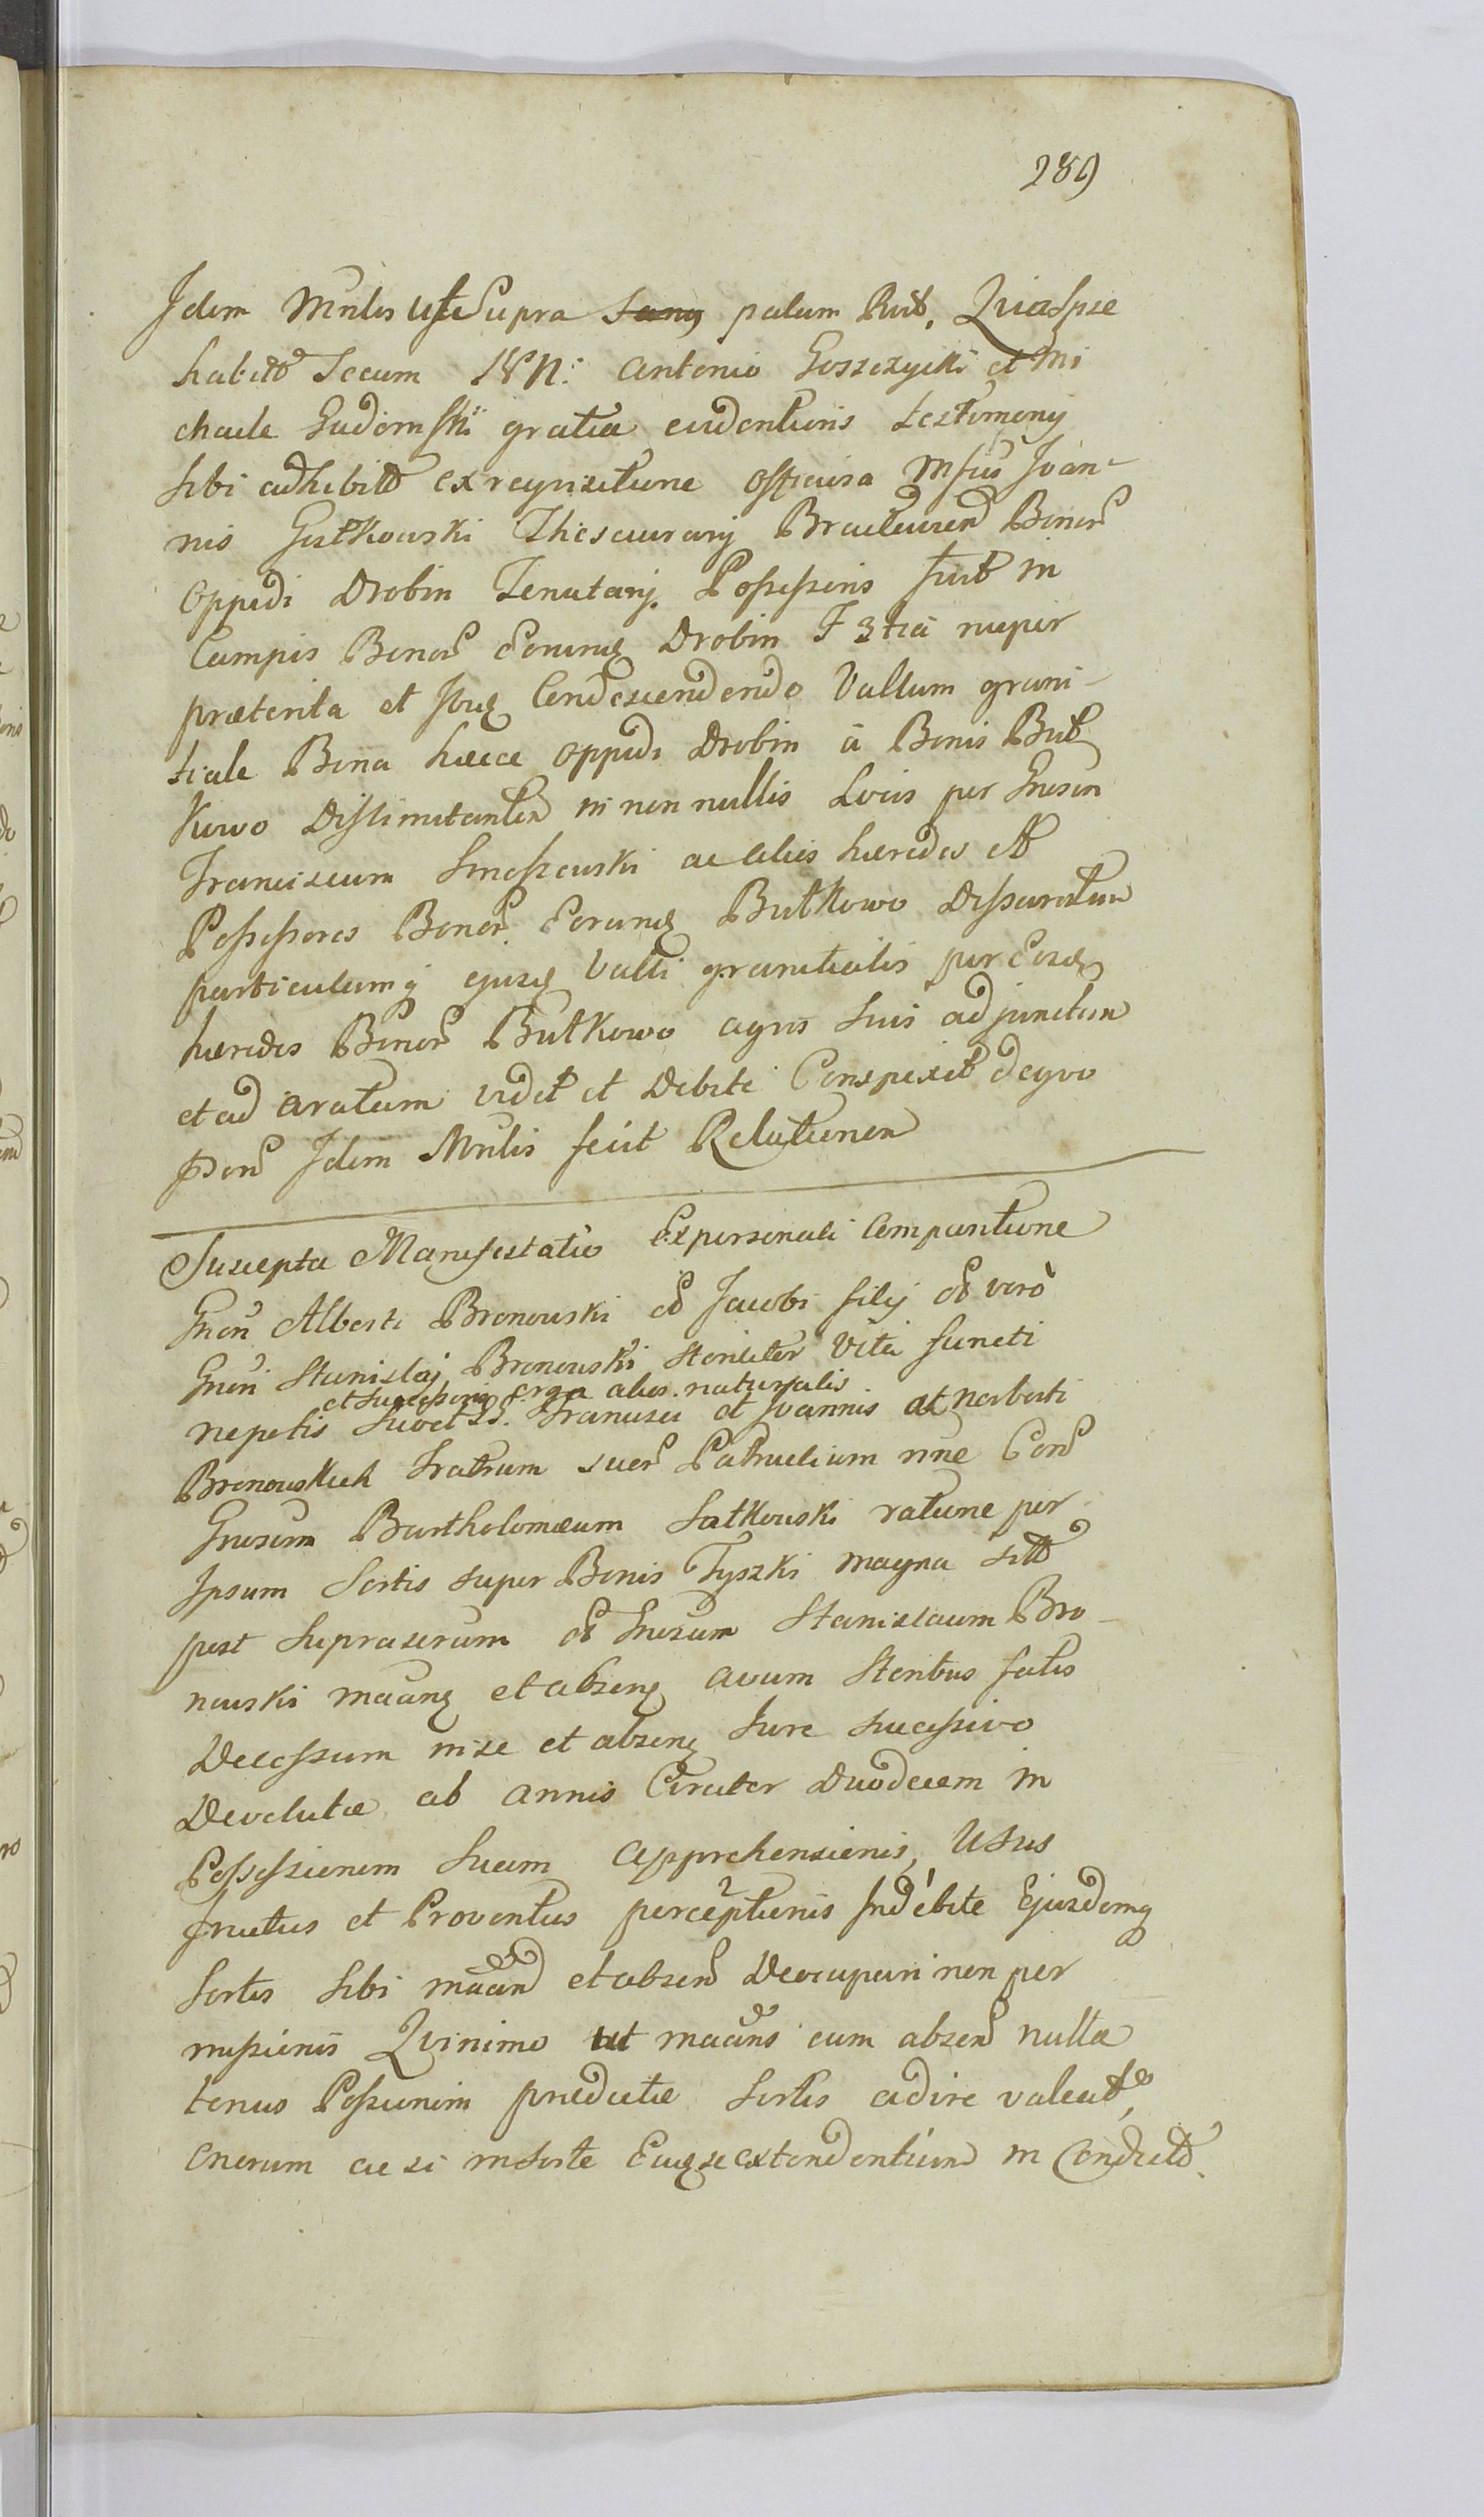 289
Idem Mnlis ut Supra palam Rect. Quia Ipse
habitt Secum Antonio Goszczycki et Mi
chaele Gadomski gratia evidentioris testimony
sibi adhibitt ex reqvisitione officiosa Mfici Joan-
nis Gutkowski Thesaurarij Braclavien Bonor
Oppidi Drobin Tenutarij Possessoris fuit in
Campis Bonor eorundq Drobin F 3tia nuper
præterita et Ibiq Condescendendo Vallum grani-
tiale Bona hæcce Oppidi Drobin à Bonis But
kowo Distimitanten in non nullis Locis per Gnosum
Franciscum Smoszewski ac alios hæredes et
Possessores Bonor Eorundq Butkowo Dissaratum
particulamq ejusq Valli granitialis per Eosdq
hæredes Bonor Butkowo agris suis adjunctum
et ad aratum vidit et Debite Conspexit de qvo
Idem Mnlis fecit Relationem
Suscepta Manifestatio Ex personali Comparitione
Gnoii Alberti Bronowski olim Jacobi filij olim verò
Gnoii Stanislaj Bronowski steriliter Vita functi
et Successoris erga alios naturalis
nepotis suo et Francisci et Joannis at Norberti
Bronowskich Fratrum suor Patruelium nne Con
Gnosum Bartholomæum Satkowski ratione per
Ipsum Sortis super Bonis Tyszki magna sitt
post suprascrum olim Gnosum Stanislaum Bro-
nowski maanq et absenq avum Steribus fatis
Decessum in se et absenq Jure successivo
Devolutæ ab annis Circiter Duodecem in
Possessionem suam Apprehensionis, Usus
fructus et Proventus perceptionis Indebite Ejusdemq
Sortis sibi maan et absen Deoccupari non per
missionis Qvinimo ut maans cum absen nulla
tenus Possunim prædictæ Sortis adire valeat,
Onerum ac si in sorte Eaq se extendentium in Conductt